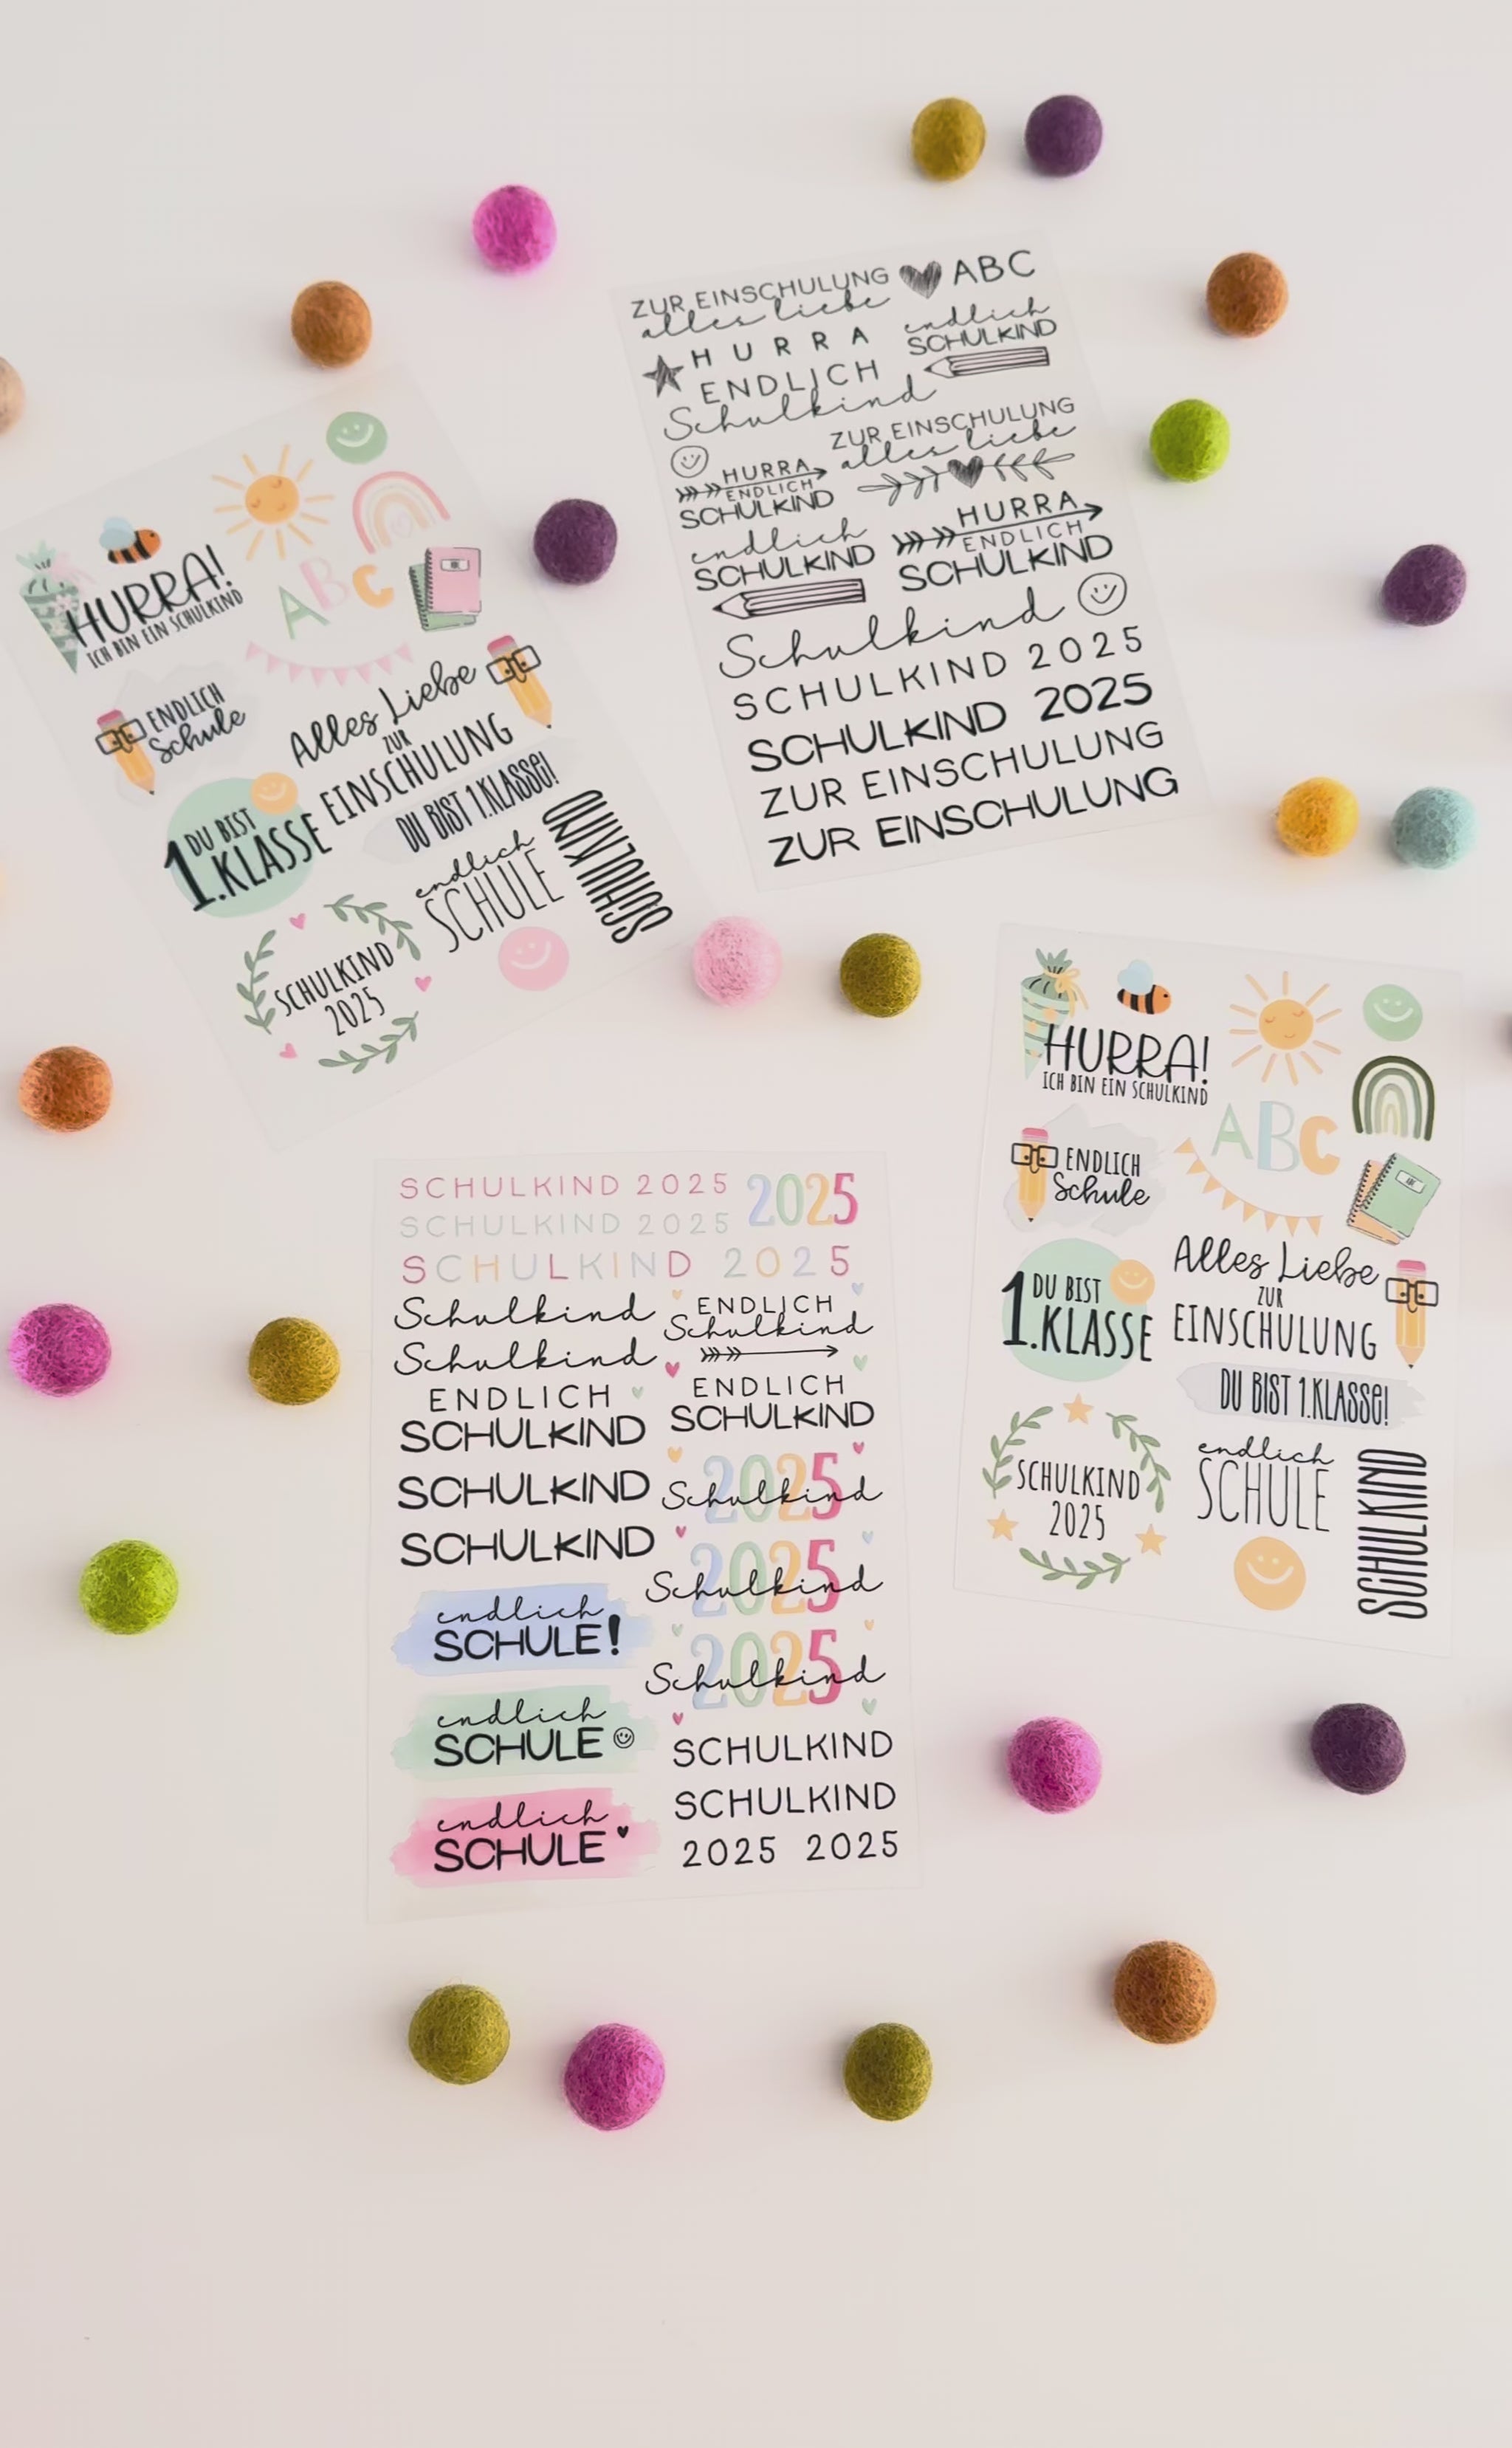 ZUR EINSCHULUNG
alles liebe
ABC
HURRA
ENDLICH
Schulkind
endlich
SCHULKIND
HURRA
ENDLICH
SCHULKIND
ZUR EINSCHULUNG
alles liebe
endlich
SCHULKIND
HURRA
ENDLICH
SCHULKIND
Schulkind
SCHULKIND 2025
SCHULKIND 2025
ZUR EINSCHULUNG
ZUR EINSCHULUNG
HURRA!
ICH BIN EIN SCHULKIND
ABC
ENDLICH
Schule
Alles Liebe
ZUR
EINSCHULUNG
DU BIST
1.KLASSE
DU BIST 1.KLASSE!
endlich
SCHULE
SCHULKIND
SCHULKIND
2025
HURRA!
ICH BIN EIN SCHULKIND
ABC
ENDLICH
Schule
DU BIST
1.KLASSE
Alles Liebe
ZUR
EINSCHULUNG
DU BIST 1.KLASSE!
SCHULKIND
2025
endlich
SCHULE
SCHULKIND
SCHULKIND 2025
SCHULKIND 2025
2025
SCHULKIND 2025
Schulkind
Schulkind
ENDLICH
SCHULKIND
SCHULKIND
SCHULKIND
endlich
SCHULE!
endlich
SCHULE
endlich
SCHULE
ENDLICH
Schulkind
ENDLICH
SCHULKIND
2025
Schulkind
2025
Schulkind
2025
Schulkind
SCHULKIND
SCHULKIND
2025 2025